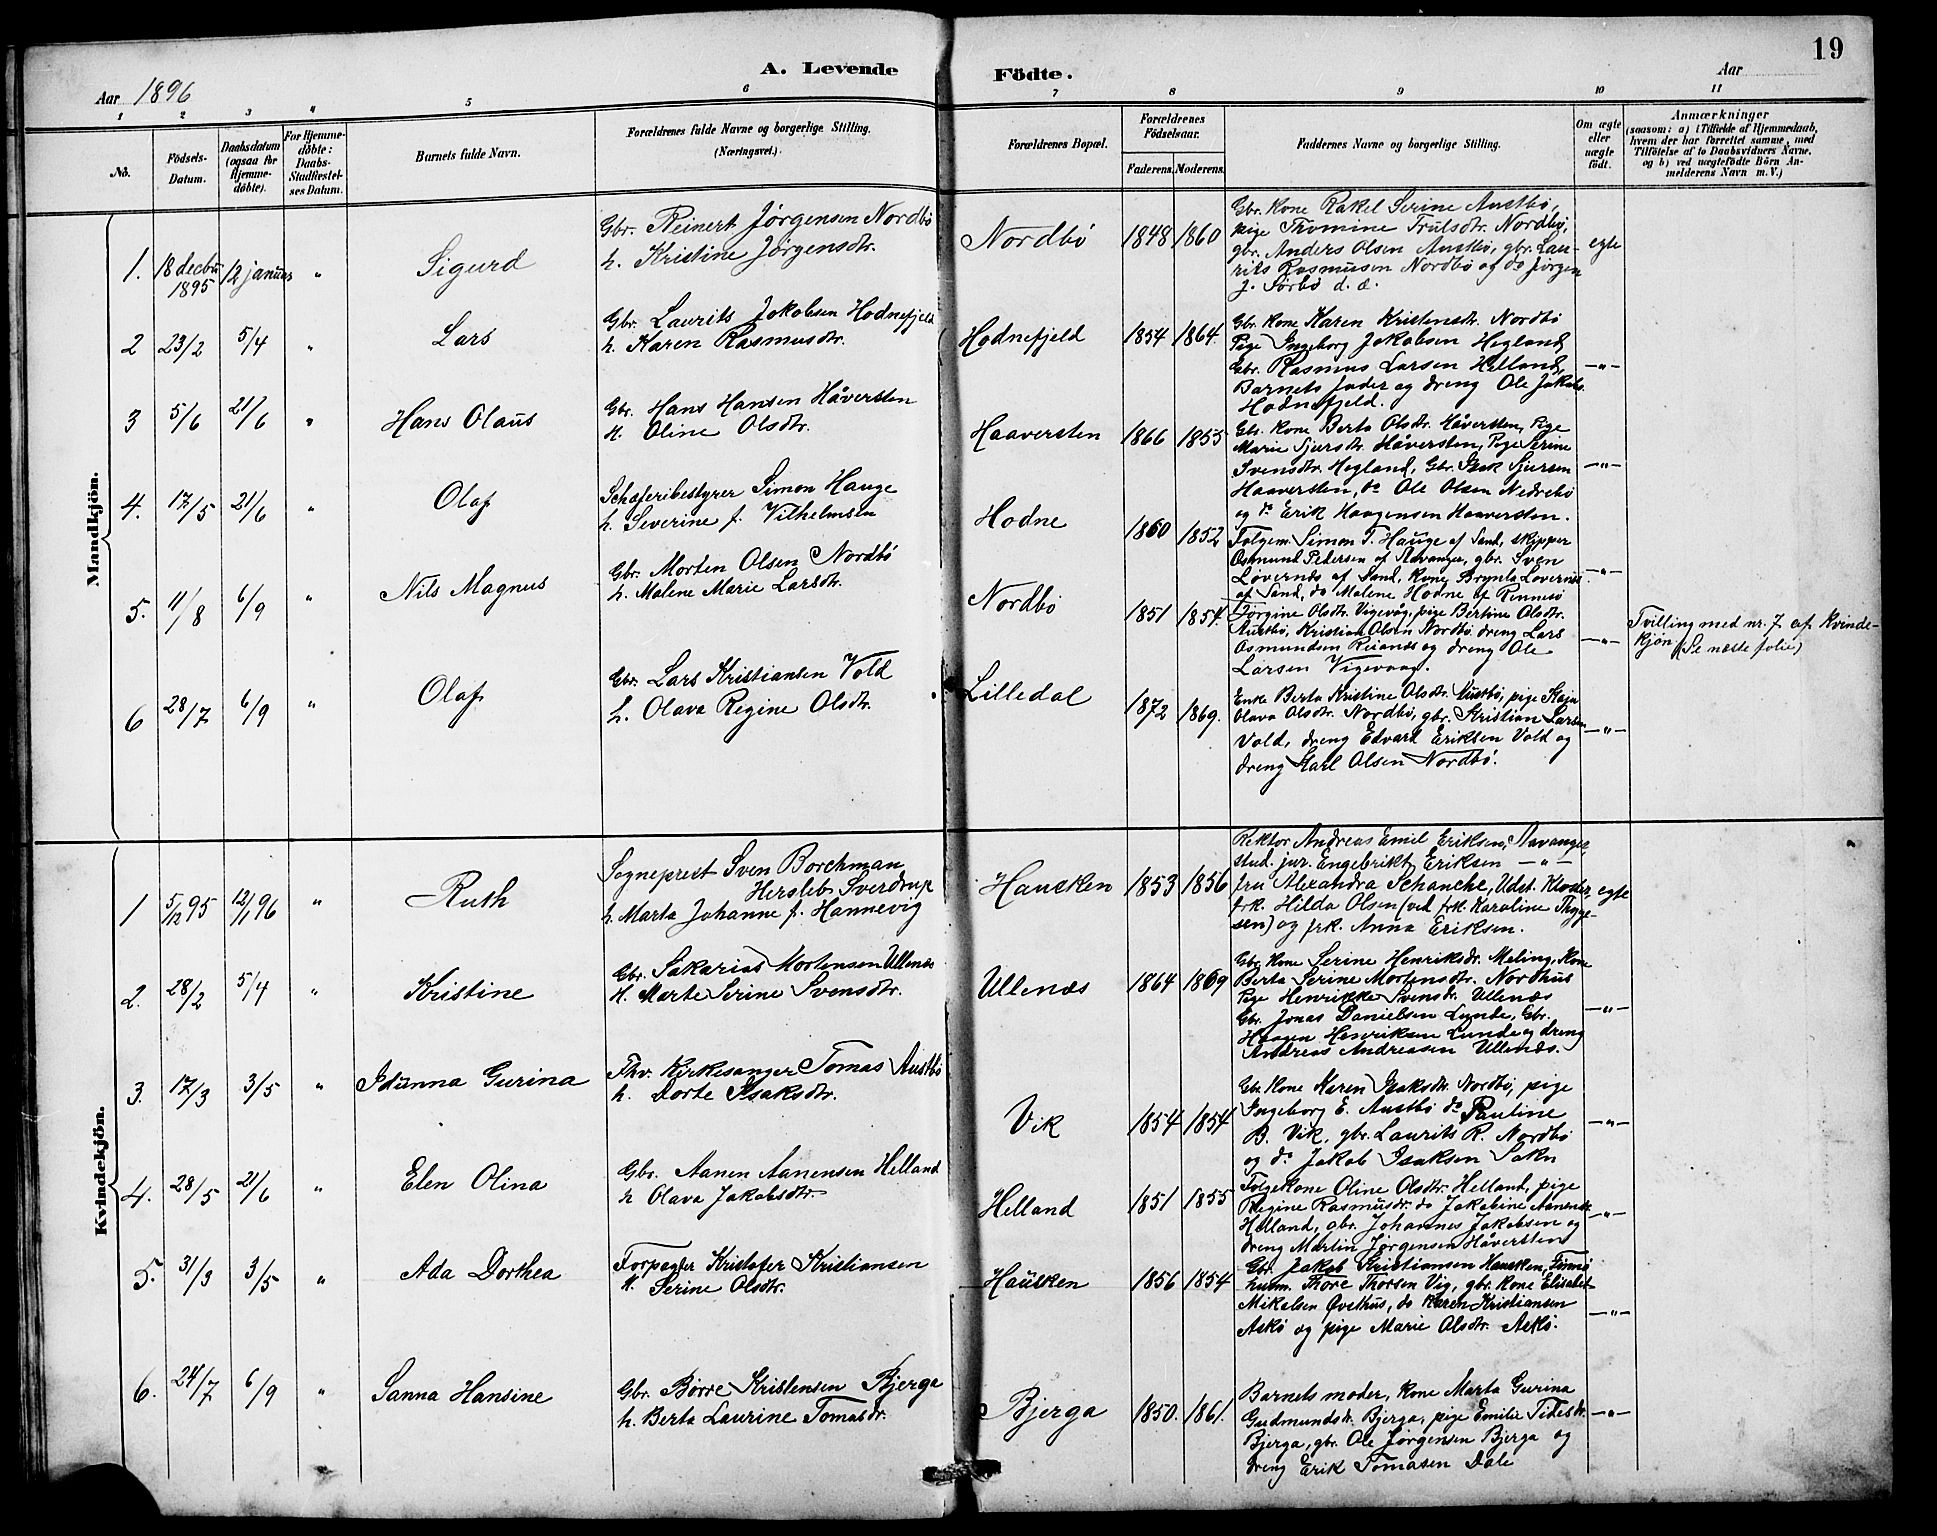 19
A. Levende Födte.
Aar 1896
Aar
1 2 3 4 5 6 7 8 9 10 11
No.
Födsels-Datum.
Daabsdatum (ogsaa for Hjemme-döbte).
For Hjemme-döbte: Daabs-Stadfæstel-ses Datum.
Barnets fulde Navn.
Forældrenes fulde Navne og borgerlige Stilling. (Næringsvei.)
Forældrenes Bopæl.
Forældrenes Födselsaar.
Faderens. Moderens.
Faddernes Navne og borgerlige Stilling.
Om ægte eller uægte födt.
Anmærkninger
(saasom: a) i Tilfælde af Hjemmedaab,
hvem der har forrettet samme, med
Tilföielse af to Daabsvidners Navne.
og b) ved uægtefödte Börn An-
melderens Navn m. V.)
Mandkjön.
1. 18 decbr. 1895 12 januar " Sigurd
Gbr. Reinert Jörgensen Nordbö
h. Kristine Jörgensdtr.
Nordbö 1848 1860
Gbr. Kone Rakel Serine Austbö,
pige Thomine Trulsdtr. Nordbö,
gbr. Anders Olsen Austbö, gbr. Lau-
rits Rasmusen Nordbö og do Jörgen
J. Sörbö d. æ.
egte
2 23/2 5/4 " Lars
Gbr. Laurits Jakobsen Hodnefjeld
h. Karen Rasmusdtr.
Hodnefjeld 1854 1864.
Gbr. Kone Karen Kristensdtr. Nordbö
Pige Ingeborg Jakobsen Hegland,
Gbr. Rasmus Larsen Helland,
Barnets fader og dreng Ole Jakobs.
Hodnefjeld.
—"—
3 5/6 21/6 " Hans Olaus
Gbr. Hans Hansen Håversten
H. Oline Olsdtr.
Haaversten 1866 1855
Gbr. Kone Berta Olsdtr. Håversten, Pige
Marie Sjursdtr. Håversten, Pige Serine
Svensdtr. Hegland, Gbr. Isak Sjursen
Haaversten, do Ole Olsen Nedrebö
og do Erik Haagensen Haaversten.
—"—
4. 17/5 21/6 " Olaf
Schæferibestyrer Simon Hauge
h. Severine f. Vilhelmsen
Hodne 1860 1852
Folgem. Simon T. Hauge af Sand, skipper
Osmund Pedersen af Stavanger, gbr. Sven
Lövernes af Sand, Kone Brynla Lövernes
af Sand, do Malene Hodne af Rennesö
—"—
5. 11/8 6/9 " Nils Magnus
Gbr. Morten Olsen Nordbö
h. Malene Marie Larsdtr.
Nordbö 1851 1854.
Jörgine Olsdtr. Vigevåg, pige Bertine Olsdtr.
Austbö, Kristian Olsen Nordbö dreng Lars
Osmundsen Reianes og dreng Ole
Larsen Vigevaag.
—"—
Tvilling med nr. 7 af Kvinde-
kjön. (Se næste folie)
6 28/7 6/9 " Olaf
Gbr. Lars Kristiansen Vold
h. Olava Regine Olsdtr.
Lilledal 1872 1869.
Enke Berta Kristine Olsdtr. Austbö, pige Kaja
Olava Olsdtr. Nordbö, gbr. Kristian Larsen
Vold, dreng Edvard Eriksen Vold og
dreng Karl Olsen Nordbö.
—"—
Kvindekjön.
1 5/12 95 12/1 96 " Ruth
Sogneprest Sven Borchman
Hersleb Sverdrup
h. Marta Johanne f. Hannevig
Hausken 1853 1856
Rektor Andreas Emil Eriksen, Stavanger,
stud. jur. Engebrikt Eriksen —"—
fru Alexandra Schanche, Udst. Kloster,
frk. Hilda Olsen (ved frk. Karoline Thyge-
sen) og frk. Anna Eriksen.
egte
2. 28/2 5/4 " Kristine
Gbr. Sakarias Mortensen Ullenes
H. Marte Serine Svensdtr.
Ullenæs 1864 1869
Gbr. Kone Serine Henriksdr. Meling, Kone
Berta Serine Mortensdtr. Nordhus
Pige Henrikke Svensdr. Ullenæs
Gbr. Jonas Danielsen Lunde, Gbr.
Haagen Henriksen Lunde og dreng
Andreas Andreasen Ullenæs.
—"—
3. 17/3 3/5 " Idunna Gurina
Fhv. Kirkesanger Tomas Austbö
h. Dorte Isaksdtr.
Vik 1854 1854
Gbr. Kone Karen Isaksdtr. Nordbö, pige
Ingeborg E. Austbö do Pauline
B. Vik, gbr. Laurits R. Nordbö
og do Jakob Isaksen Sokn
—"—
4. 28/5 21/6 " Elen Olina
Gbr. Aanen Aanensen Helland
h Olava Jakobsdtr.
Helland 1851 1855
Folgekone Oline Olsdtr. Helland, pige
Regine Rasmusdr. do Jakobine Aanensdr.
Helland, gbr. Johannes Jakobsen og
dreng Martin Jörgensen Håversten
—"—
5. 31/3 3/5 " Ada Dorthea
Forpagter Kristofer Kristiansen
H. Serine Olsdtr.
Hausken 1856 1854
Gbr. Jakob Kristiansen Hausken, Finnö
husm. Thore Thorsen Vig, gbr. Kone Elisabet
Mikalsen Østhus, do Karen Kristiansen
Askö og pige Marie Olsdtr. Askö.
—"—
6. 24/7 6/9 " Sanna Hansine
Gbr. Börre Kristensen Bjerga
h. Berta Laurine Tomasdr.
Bjerga 1850. 1861.
Barnets moder, Kone Marta Gurina
Gudmundsdr. Bjerga, pige Emilie Tidesdr.
Bjerga, gbr. Ole Jörgensen Bjerga og
dreng Erik Tomasen Dale
—"—